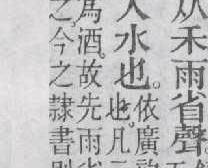 从禾雨省聲
入水也。
依廣
也。凡
爲酒。故先雨
之。今之隷書